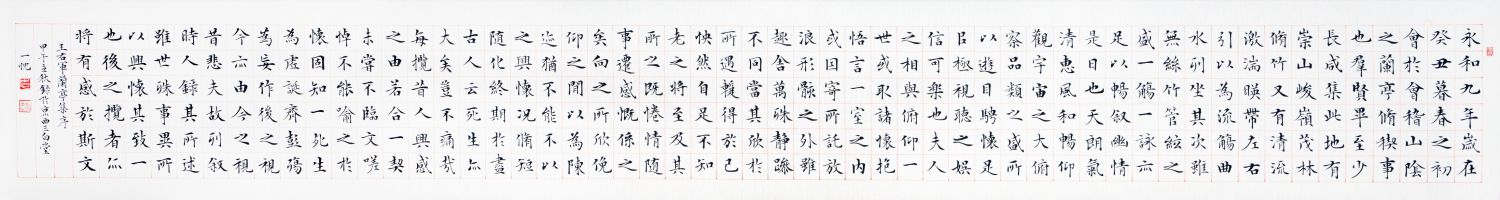 永和九年歲在
癸丑暮春之初
會於會稽山陰
之蘭亭脩稧事
也羣賢畢至少
長咸集此地有
崇山峻嶺茂林
脩竹又有清流
激湍暎帶左右
引以為流觴曲
水列坐其次雖
無絲竹管絃之
盛一觴一詠亦
足以暢叙幽情
是日也天朗氣
清惠風和暢仰
觀宇宙之大俯
察品類之盛所
以遊目騁懷足
以極視聽之娛
信可樂也夫人
之相與俯仰一
世或取諸懷抱
悟言一室之內
或因寄所託放
浪形骸之外雖
趣舍萬殊靜躁
不同當其欣於
所遇蹔得於己
怏然自足不知
老之將至及其
所之既惓情隨
事遷感慨係之
矣向之所欣俛
仰之間以為陳
迹猶不能不以
之興懷況脩短
隨化終期於盡
古人云死生亦
大矣豈不痛哉
每攬昔人興感
之由若合一契
未嘗不臨文嗟
悼不能喻之於
懷固知一死生
為虛誕齊彭殤
為妄作後之視
今亦由今之視
昔悲夫故列叙
時人錄其所述
雖世殊事異所
以興懷其致一
也後之攬者亦
將有感於斯文
王右軍蘭亭集序
甲午之秋錄於京西三白堂